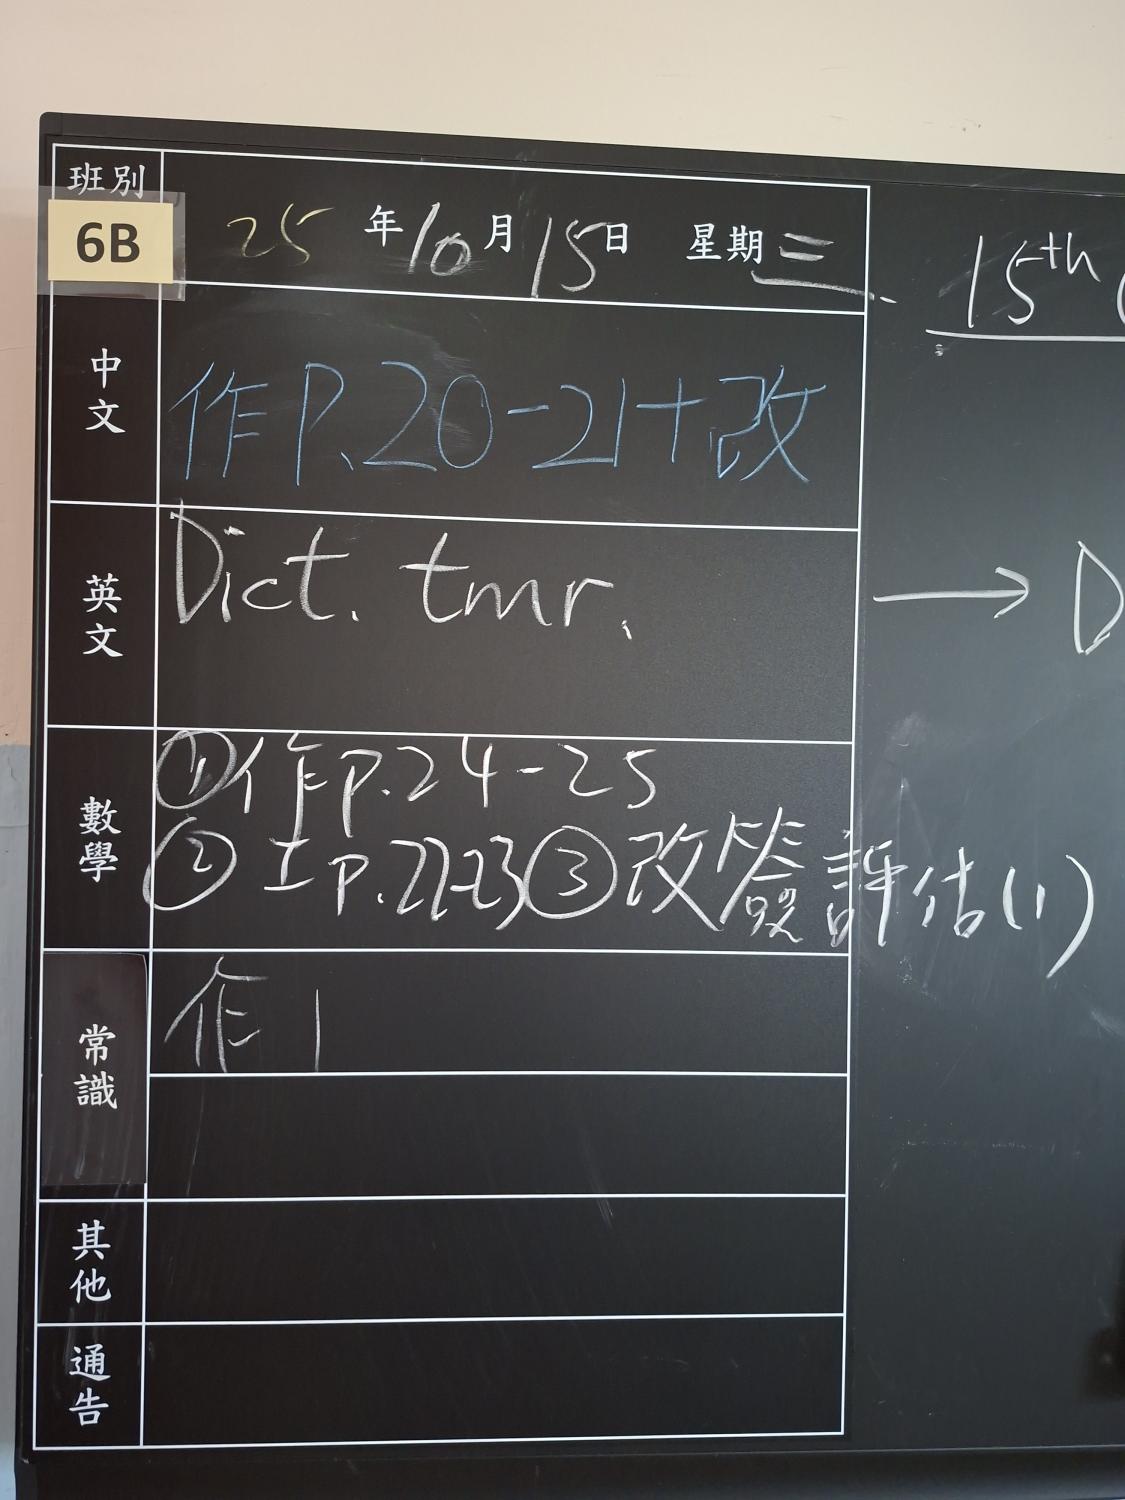 班別
6B
25年10月15日 星期三
15th
中文
作P.20-21+改
英文
Dict. tmr.
→ D
數學
①作P.24-25
②工P.22-23③改簽評估(1)
常識
作1
其他
通告